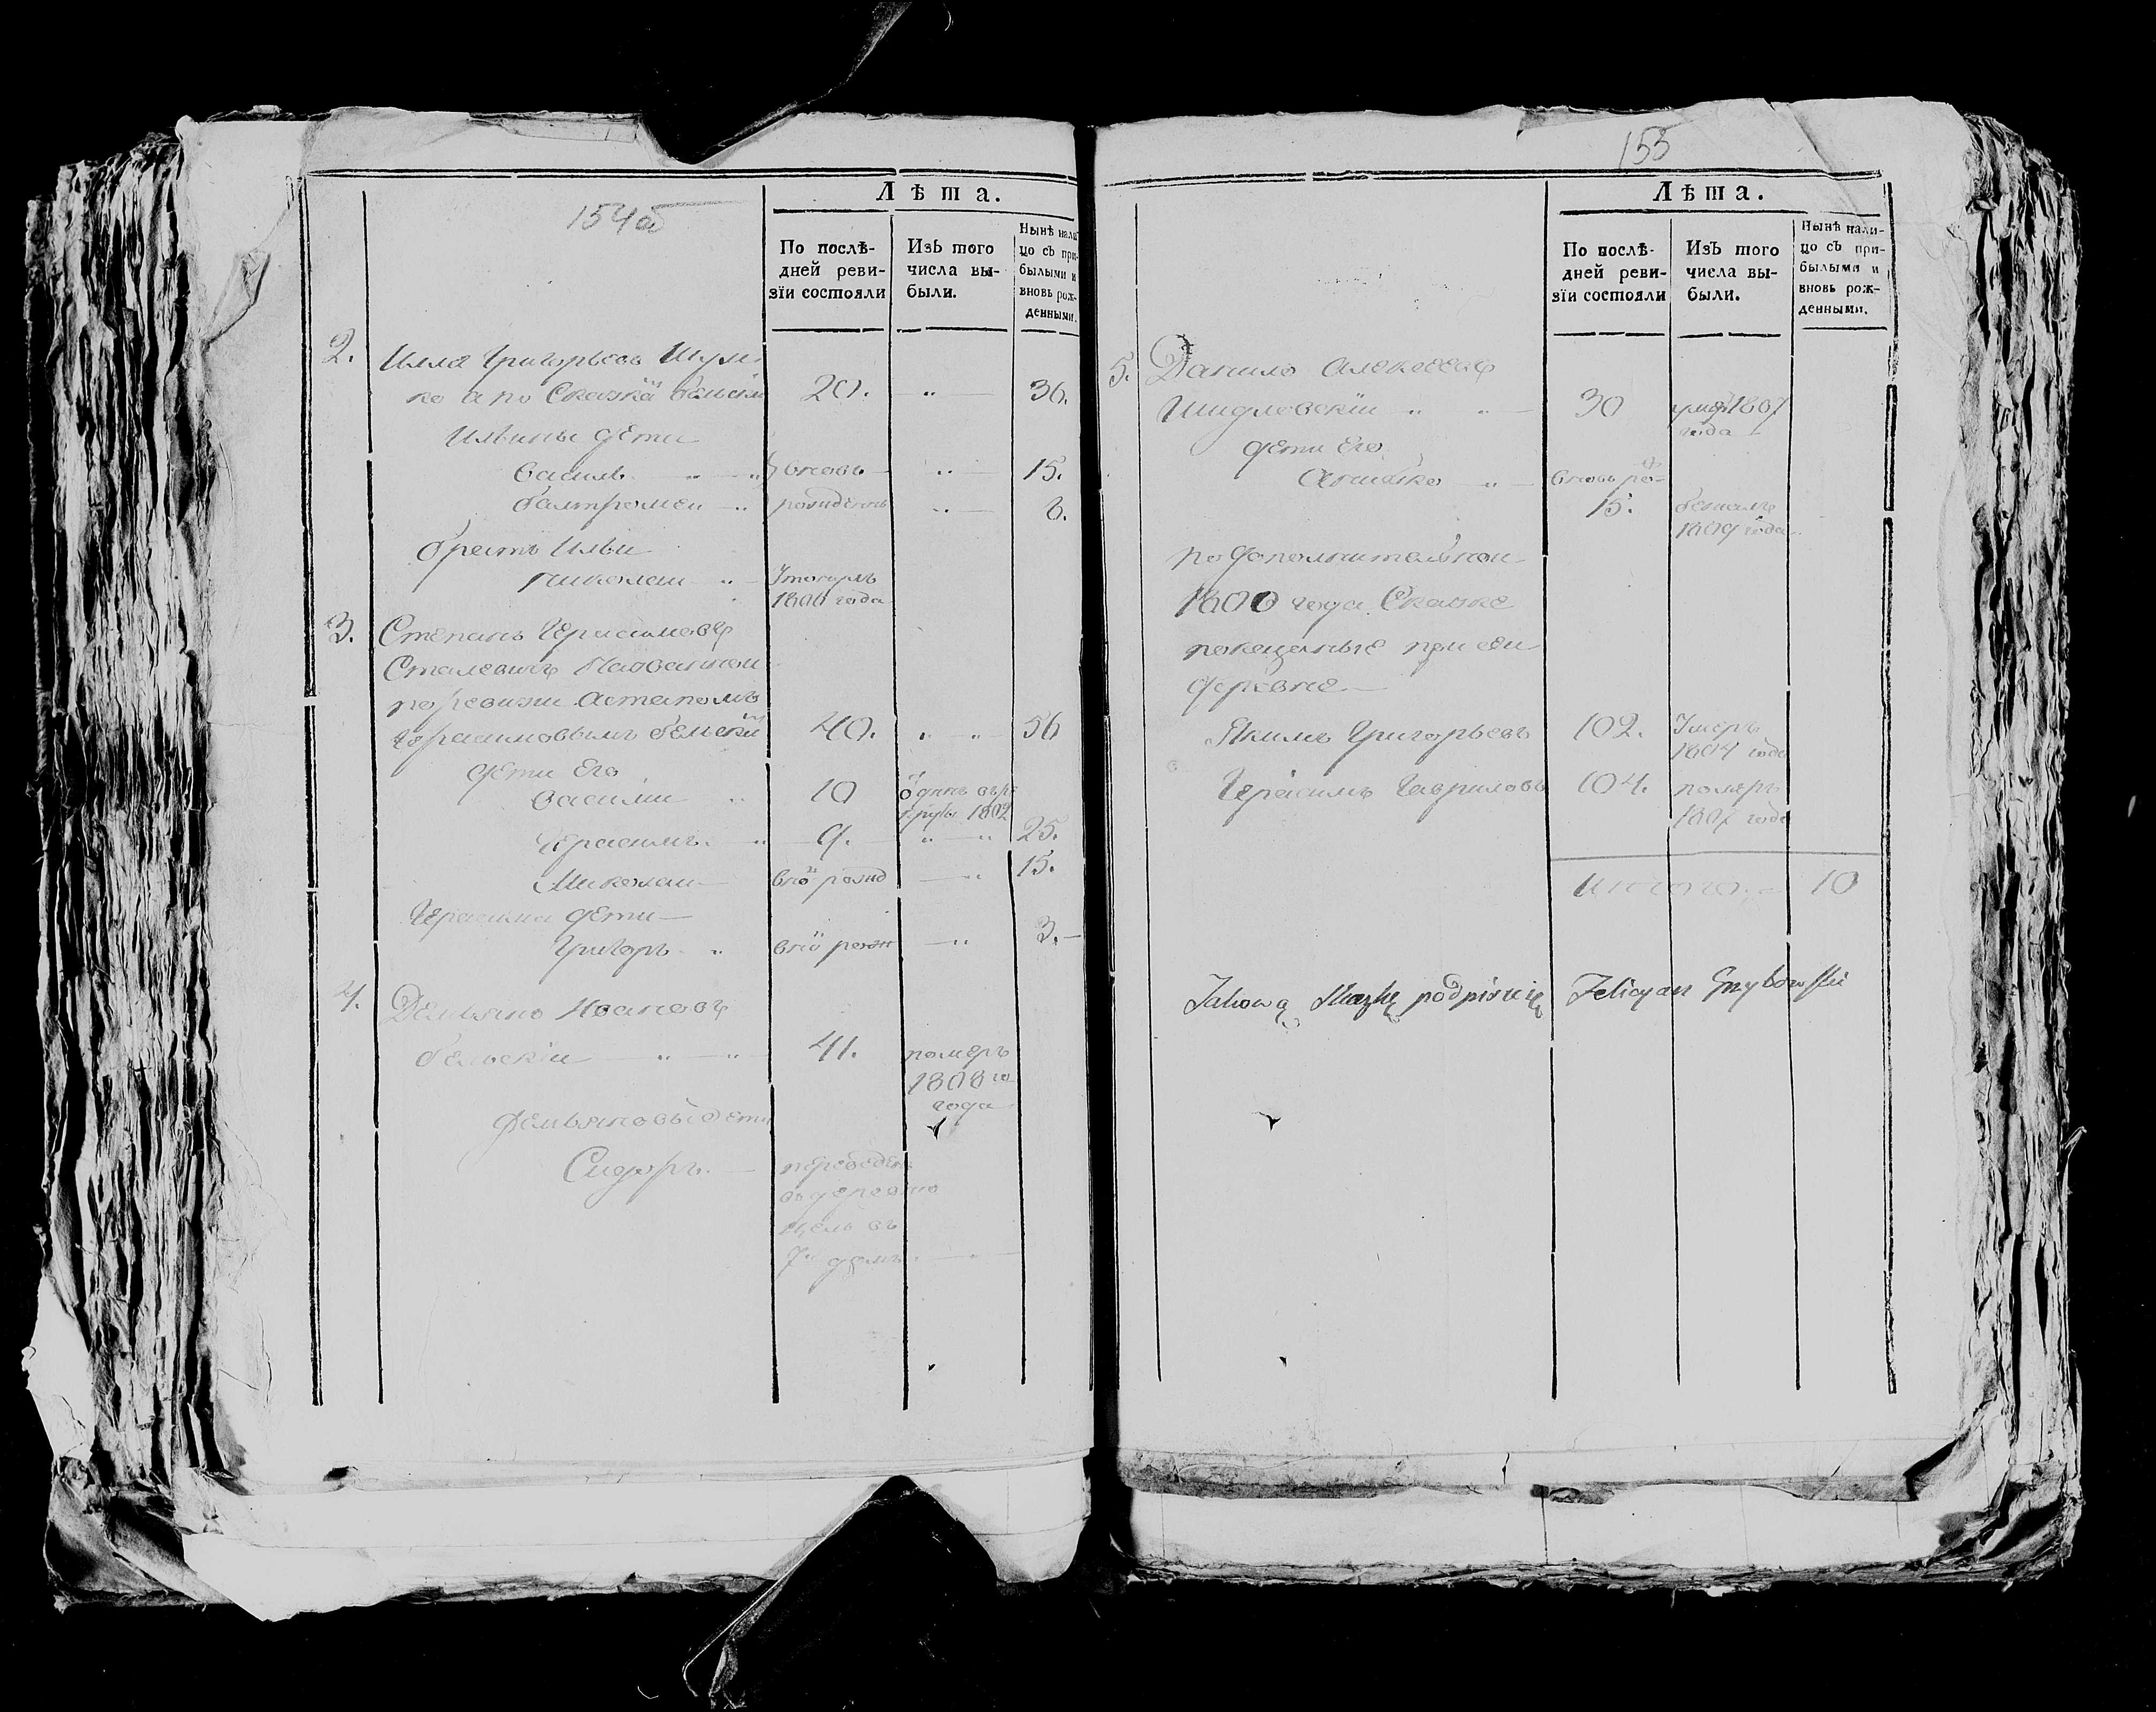 154об
Лѣта.
По послѣ-
дней реви-
зїи состояли
Изъ того
числа вы-
были.
Нынѣ нали
цо съ при-
былыми и
вновь рож-
денными.
2. Илла Григорьевъ Шум
ко а по Сказкй Бельскій 20. " 36.
Ильины дети
Василь " вновь " 15.
балтромей " рожденъ " 8.
братъ Ильи
николай " Умогилъ
1800 года
3. Степанъ Герасимовъ
Сталевичъ Названной
по ревизии Астапомъ
Герасимовымъ бельскій 40. " " 56
дети Его
Василий " 10 одинъ въ ре
круты 1802
Герасимъ. " 9. " " 25.
Миколай внő рожд " 15.
Герасима дети
Григоръ " внő рожд " 3.
4. Демьянъ Ивановъ
бельскій " " 41. померъ
1808 го
года
Демьяновы дети
Сидоръ. переведенъ
въ деревню
въ
7й домъ
155
Лѣта.
По послѣ-
дней реви-
зїи состояли
Изъ того
числа вы-
были.
Нынѣ нали-
цо съ при-
былыми и
вновь рож-
денными.
5. Данило Алексеевъ
Шидловскій " " 30 умеръ 1807
года
дети Его
" вновь ро-
15. бежалъ
1809 года
по дополнительной
1800 года Сказке
показаные при сей
деревне
Якимъ Григорьевъ 102. Умеръ
1804 года
Герасимъ Гавриловъ 104. померъ
1807 года
Итого 10
Takową Skazkę podpisuię Felicyan Grzybowski